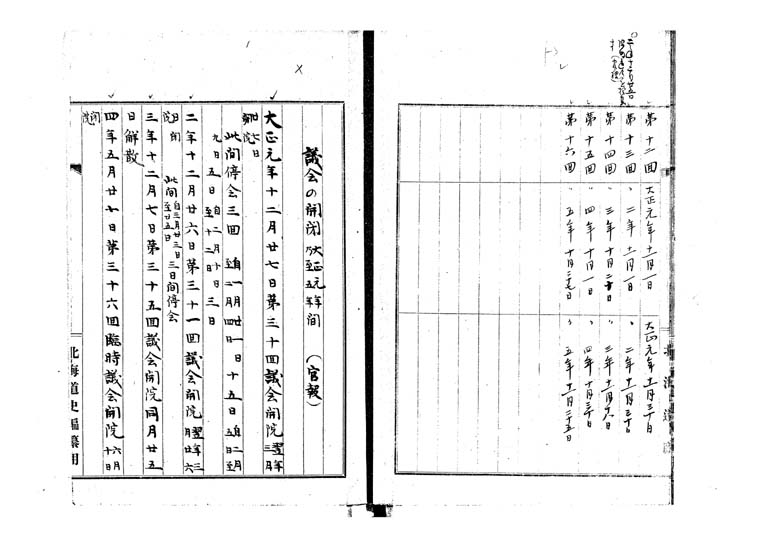 第十二回 大正元年十一月一日 大正元年十一月三十日
第十三回 〃 二年十一月一日 〃 二年十一月三十日
第十四回 〃 三年十月二十日 〃 三年十一月十八日
第十五回 〃 四年十月一日 〃 四年十月三十日
第十六回 〃 五年十月二十七日 〃 五年十一月二十五日
議会の開閉 自大正元年至五年間 (官報)
大正元年十二月廿七日第三十回議会開院 翌年三月
廿六日閉院
此間停会三回 自一月廿一日十五日 自二月五日至
九日五日 自二月十日三日
至十二日
二年十二月廿六日第三十一回議会開院 翌年三月廿六
日閉院 此間自三月廿三日至廿五日三日間停会
三年十二月七日第三十五回議会開院同月廿五
日解散
四年五月廿日第三十六回臨時議会開院 六月十日
閉院
北海道史編纂用